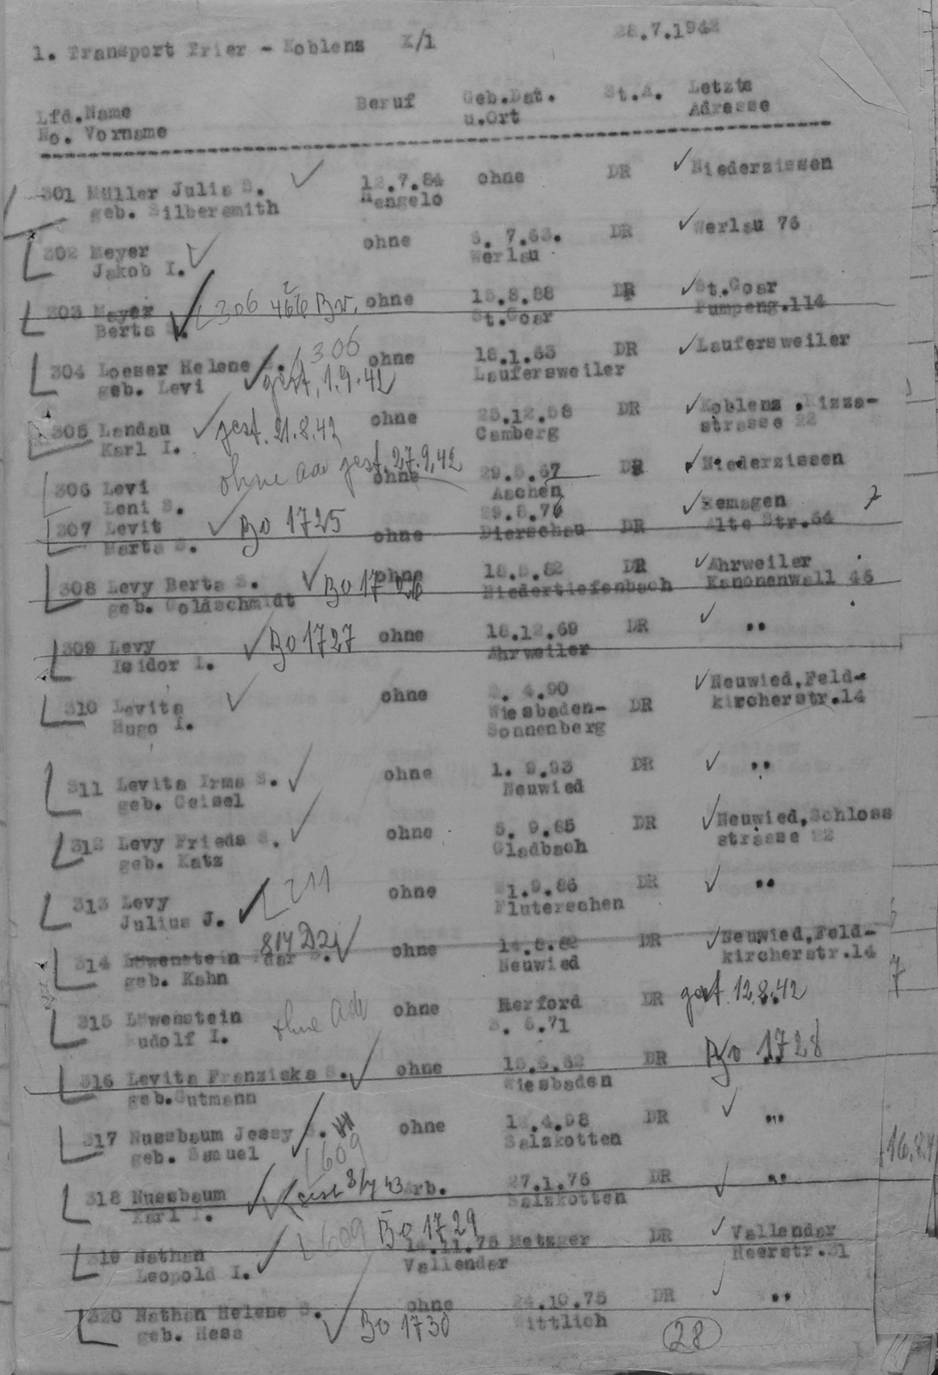 1. Transport Trier - Koblenz X/1 28.7.1942
Lfd.Name Beruf Geb.Dat. St.A. Letzte
No. Vorname u.Ort Adresse
301 Müller Julie S. 12.7.84 ohne DR Niederzissen
geb. Silbersmith Hengelo
302 Meyer ohne 7.63. DR Werlau 76
Jakob I. Werlau
303 Meyer 306 466 Bv. ohne 15.8.88 DR St.Goar
Berta S. St.Goar Pumpeng.114
304 Loeser Helene S. 306 ohne 18.1.65 DR Laufersweiler
geb. Levi gest. 1.9.42 Laufersweiler
305 Landau gest. 21.8.42 ohne 25.12.58 DR Koblenz, Rizza-
Karl I. Camberg strasse 22
306 Levi ohne Adr gest. 27.9.42 ohne 29.5.67 DR Niederzissen
Leni S. Aachen
307 Levit Bo 1725 ohne 29.8.76 DR Remagen
Marta S. Dierschau Alte Str.54
308 Levy Berta S. Bo 1726 ohne 18.5.82 DR Ahrweiler
geb. Goldschmidt Niedertiefenbach Kanonenwall 45
309 Levy Bo 1727 ohne 16.12.69 DR ..
Isidor I. Ahrweiler
310 Levita ohne 4.90 DR Neuwied,Feld-
Hugo I. Wiesbaden- kircherstr.14
Sonnenberg
311 Levita Irma S. ohne 1. 9.93 DR ..
geb. Geisel Neuwied
312 Levy Frieda S. ohne 5. 9.85 DR Neuwied,Schloss
geb. Katz Gladbach strasse 22
313 Levy 211 ohne 1.9.86 DR ..
Julius J. Fluterschen
314 Löwenstein S. 814 ohne 14.8.82 DR Neuwied,Feld-
geb. Kahn Neuwied kircherstr.14
315 Löwenstein ohne Adr ohne Herford DR gest. 12.8.42
Rudolf I. 5.71
316 Levita Franziska S. ohne 15.5.62 DR Bo 1728
geb.Gutmann Wiesbaden
317 Nussbaum Jessy S. ohne 4.98 DR ..
geb. Samuel 609 Salzkotten
318 Nussbaum gest 43 Arb. 27.1.76 DR ..
Karl I. Salzkotten
319 Nathan 609 Bo 1729 14.11.75 Metzger DR Vallendar
Leopold I. Vallendar Heerstr.31
320 Nathan Helene S. ohne 24.10.75 DR ..
geb. Hess Bo 1730 Wittlich
28